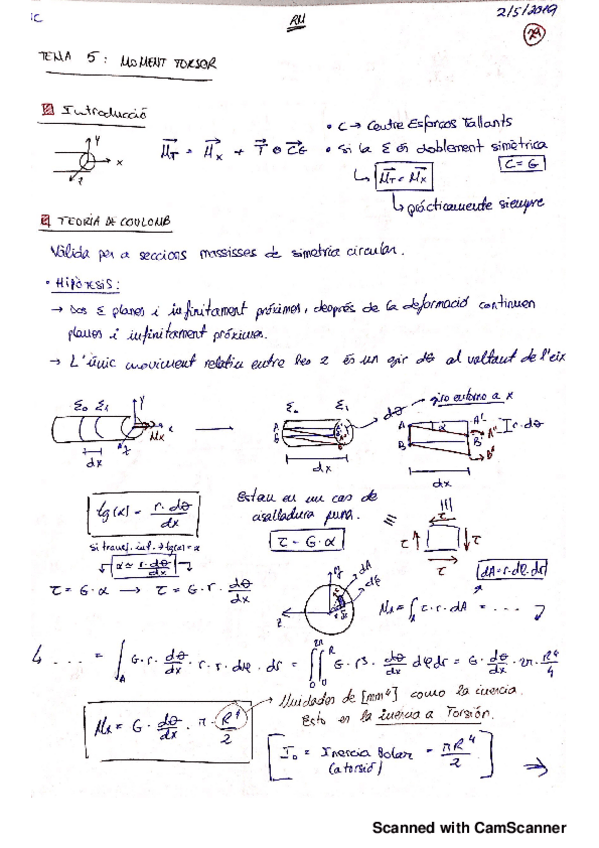 IC
RM
2/5/2019
29
TEMA 5: MOMENT TORSOR
Introducció
Y
x
z
M_T = M_x + T ⊗ CG
• C → Centre Esforços Tallants
• Si la Σ és doblement simètrica
C = G
↳ M_T = M_x
↳ prácticamente siempre
TEORIA DE COULOMB
Vàlida per a seccions massisses de simetria circular.
• Hipòtesis:
→ Dos Σ planes i infinitament pròximes, després de la deformació continuen
planes i infinitament pròximes.
→ L'únic moviment relatiu entre les 2 és un gir dθ al voltant de l'eix
Σ₀ Σ₁ Y Mx x z dx
Σ₀ Σ₁ dθ A B A' B' A'' B'' dx
giro entorno a x
A B α A' B' A'' B'' I r·dθ dx
tg(α) = r·dθ/dx
si transf. inf. → tg(α) ≈ α
α ≈ r·dθ/dx
Estau en un cas de
cisalladura pura.
τ = G·α
≡ τ τ τ τ
τ = G·α → τ = G·r·dθ/dx
y z dA dφ
dA = r·dφ·dr
Mx = ∫_A τ·r·dA = ...
↳ ... = ∫_A G·r·dθ/dx·r·r·dφ·dr = ∫₀^2π ∫₀^R G·r³·dθ/dx dφ dr = G·dθ/dx·2π·R⁴/4
Mx = G·dθ/dx·π·R⁴/2
→ Unidades de [mm⁴] como la inercia.
Esto es la inercia a Torsión.
I₀ = Inercia Polar = πR⁴/2
(a torsió)
⇒
Scanned with CamScanner